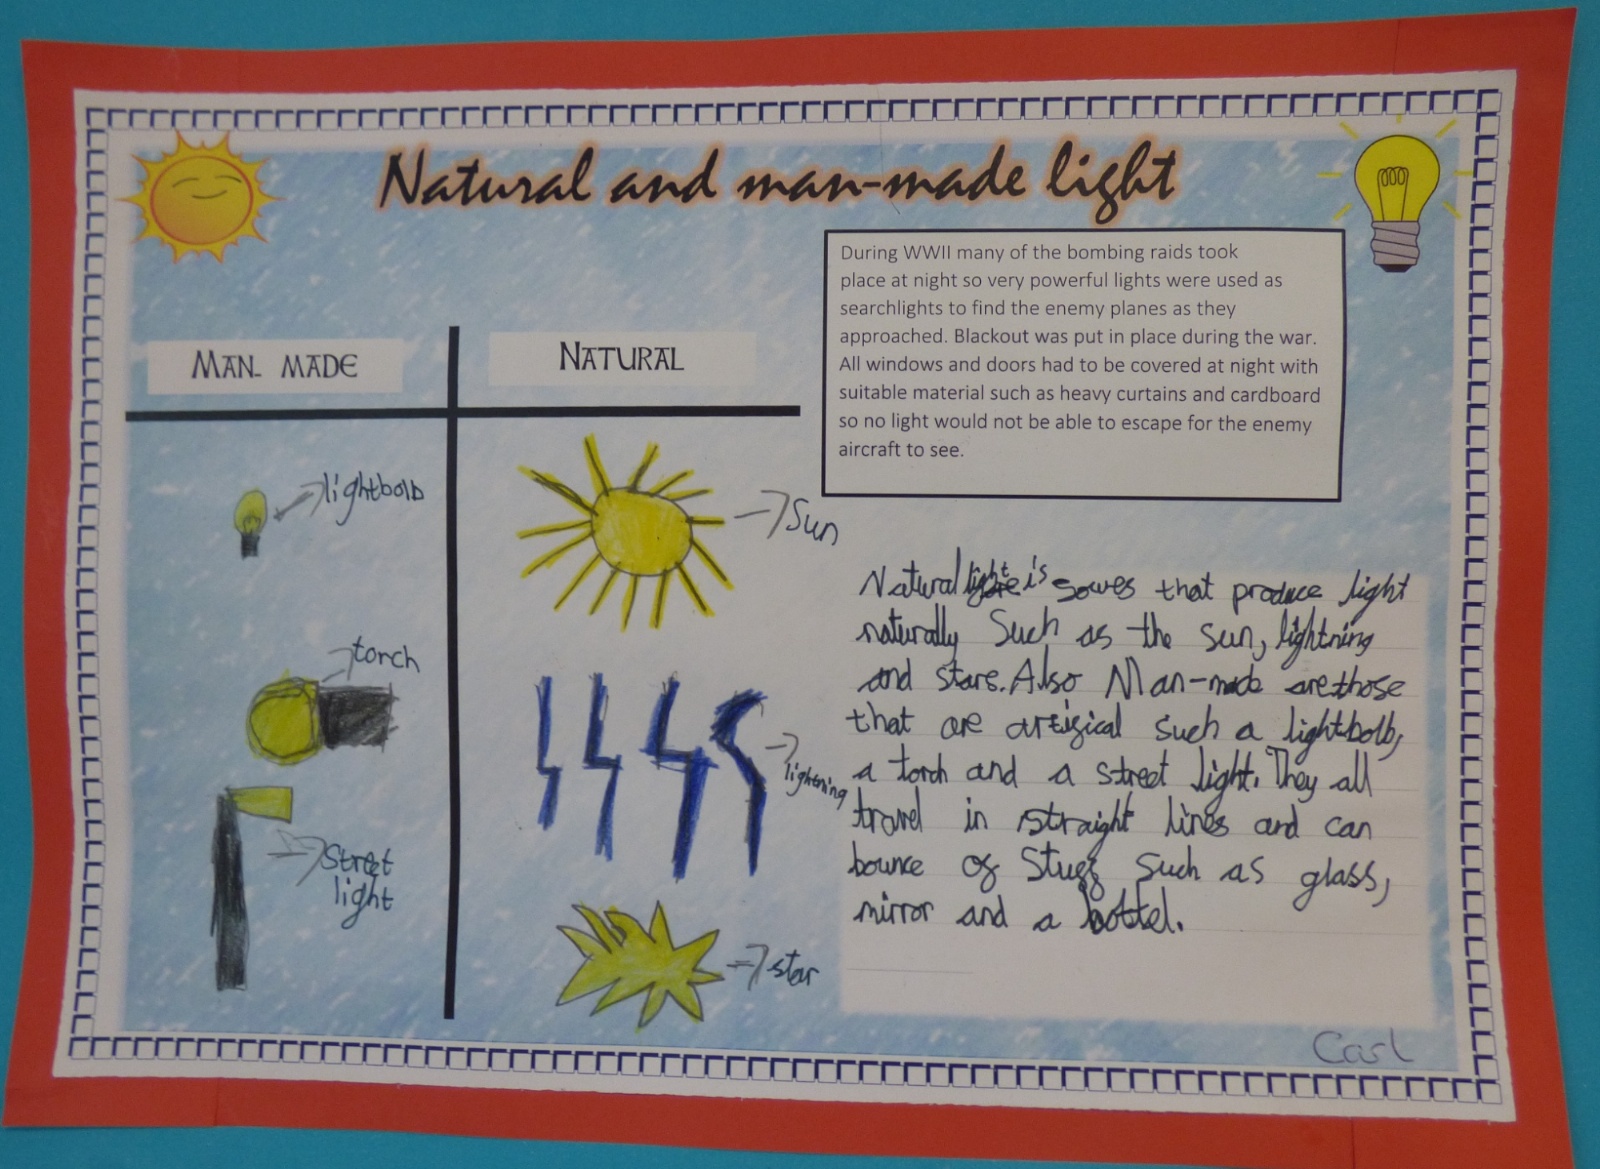 Natural and man-made light
During WWII many of the bombing raids took
place at night so very powerful lights were used as
searchlights to find the enemy planes as they
approached. Blackout was put in place during the war.
All windows and doors had to be covered at night with
suitable material such as heavy curtains and cardboard
so no light would not be able to escape for the enemy
aircraft to see.
MAN- MADE
NATURAL
lightbolb
Sun
torch
lightning
Street
light
star
Natural light is sowes that produce light
naturally Such as the sun, lightning
and stars. Also Man-made are those
that are artifical such a lightbolb,
a torch and a street light. They all
travel in straight lines and can
bounce of Stuff such as glass,
mirror and a bottel.
Carl